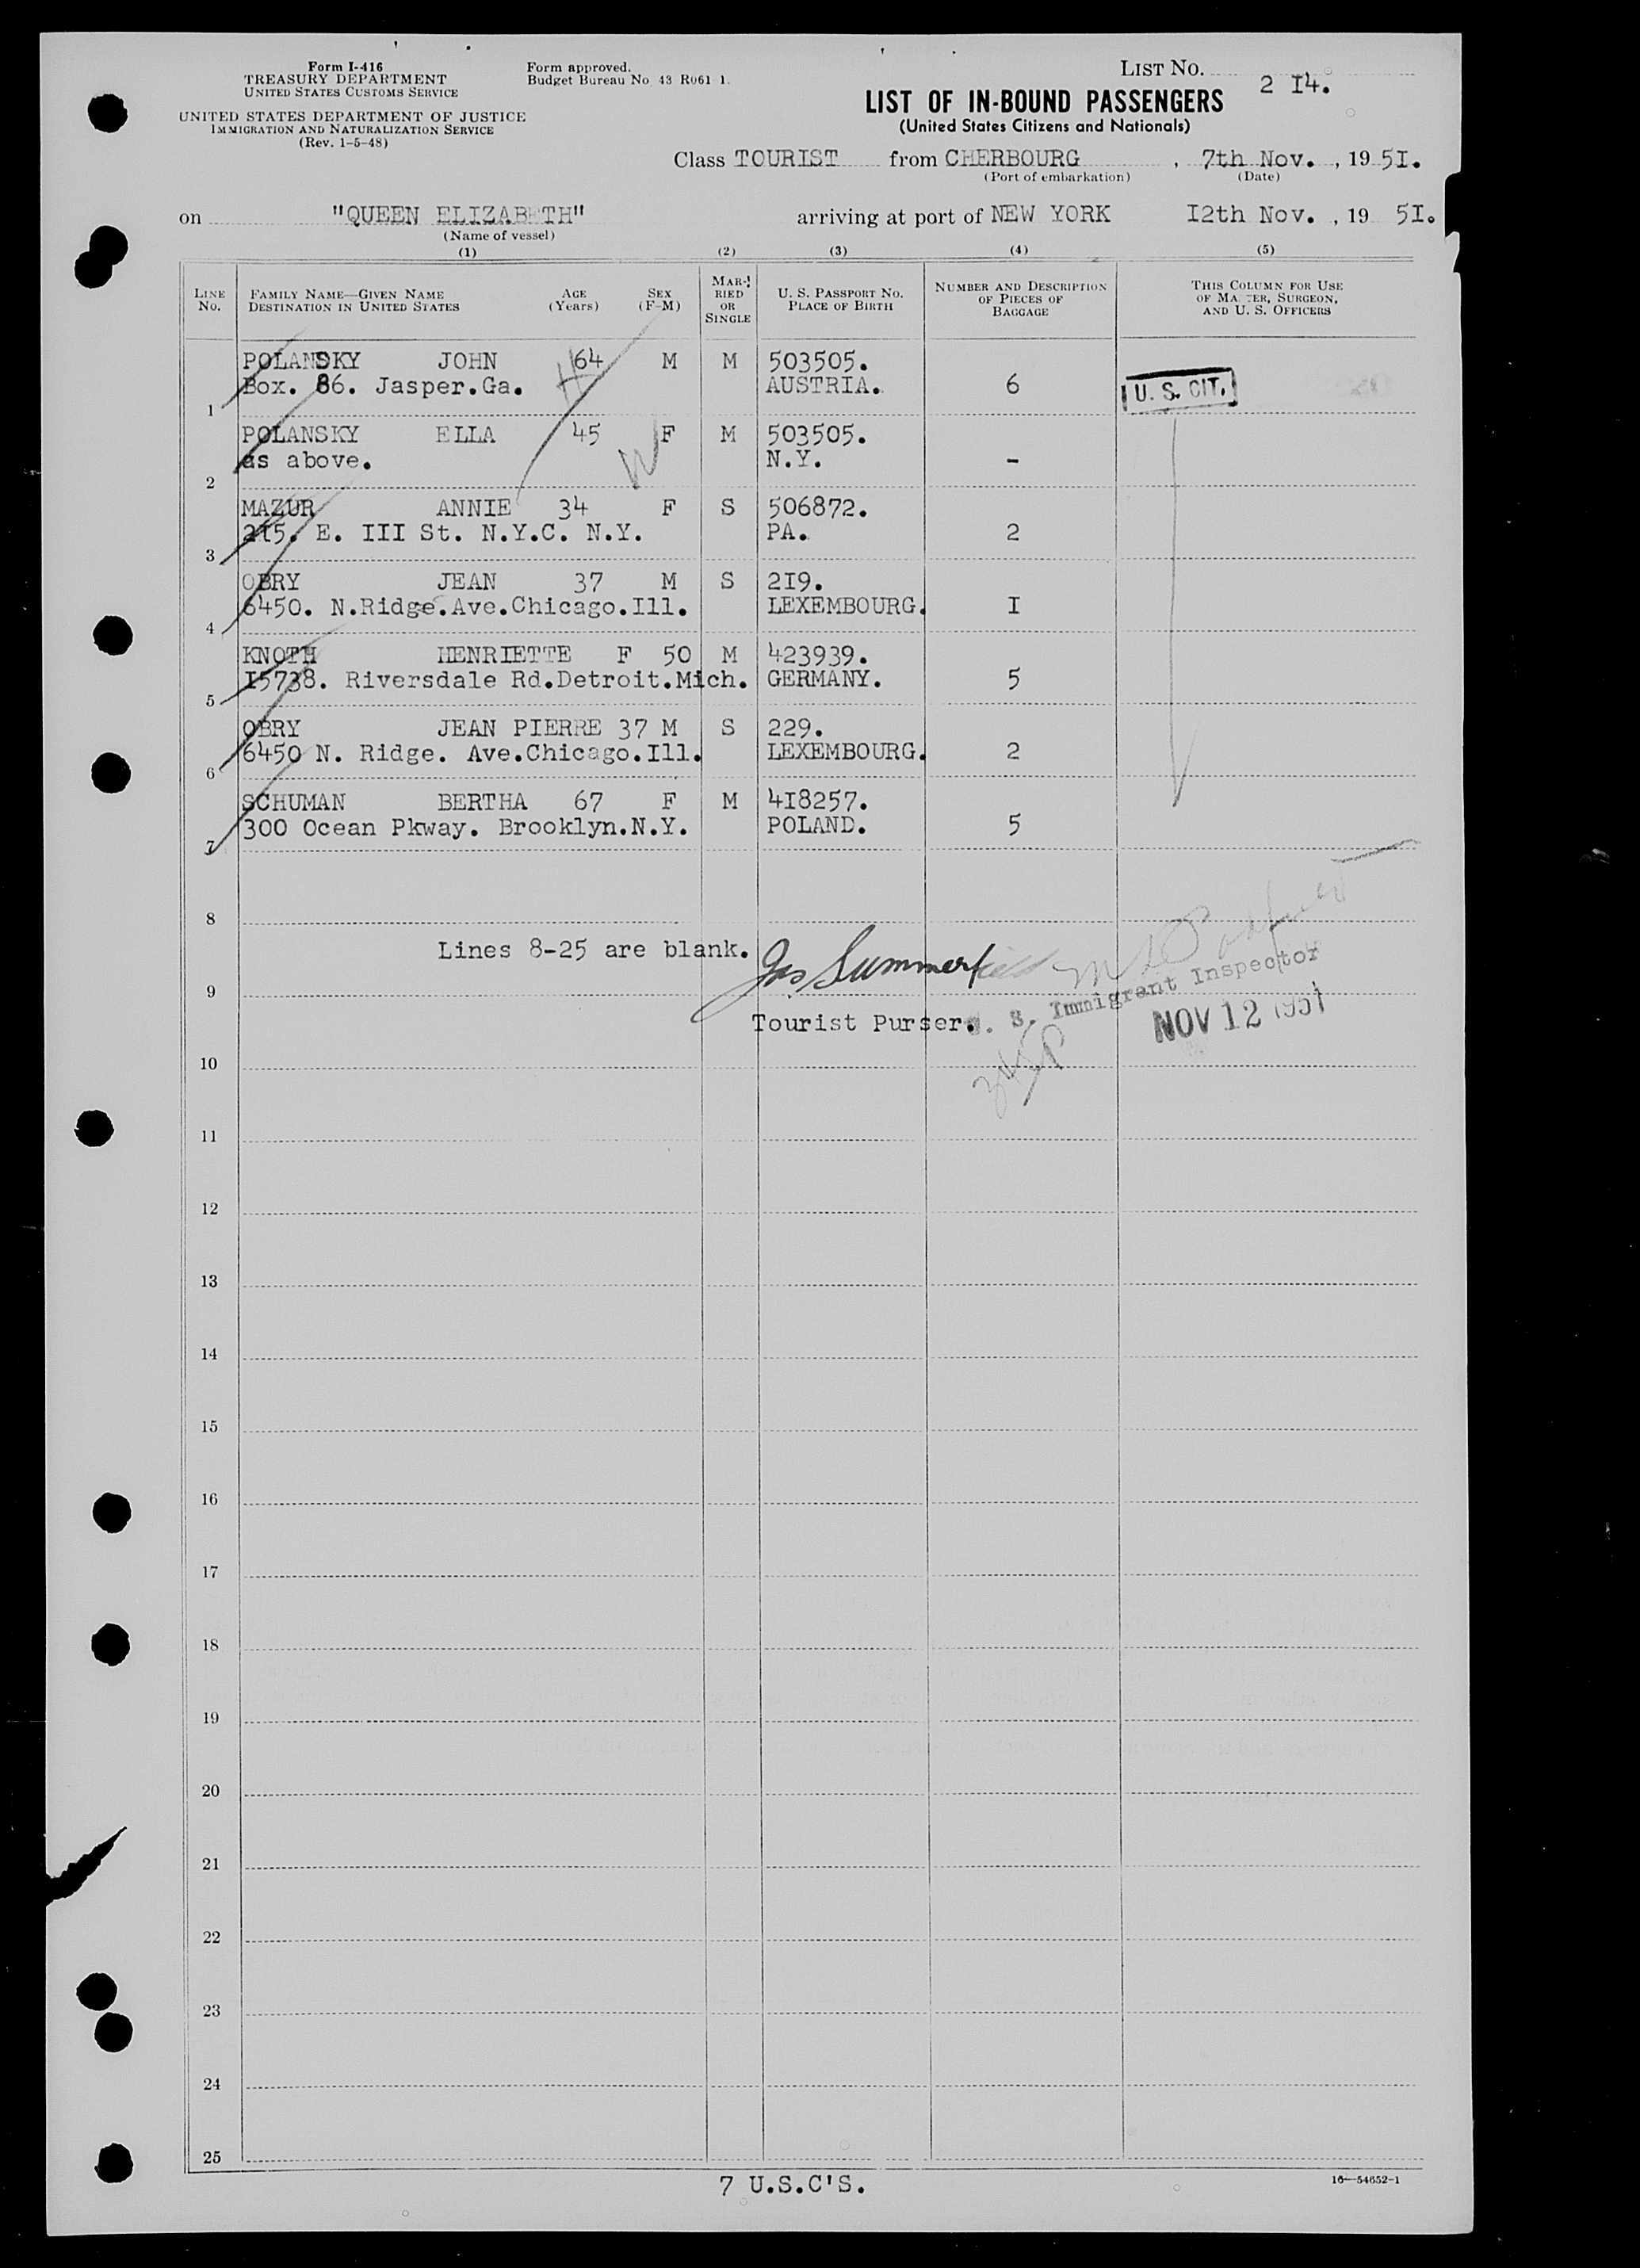 Form I-416
TREASURY DEPARTMENT
UNITED STATES CUSTOMS SERVICE
UNITED STATES DEPARTMENT OF JUSTICE
IMMIGRATION AND NATURALIZATION SERVICE
(Rev. 1-5-48)
Form approved.
Budget Bureau No. 43 R061 1.
LIST No. 2 I4.
LIST OF IN-BOUND PASSENGERS
(United States Citizens and Nationals)
Class TOURIST from CHERBOURG, 7th Nov., 19 5I.
(Port of embarkation) (Date)
on "QUEEN ELIZABETH" arriving at port of NEW YORK I2th Nov., 19 5I.
(Name of vessel)
(1) (2) (3) (4) (5)
LINE No.
FAMILY NAME—GIVEN NAME
DESTINATION IN UNITED STATES
AGE (Years)
SEX (F-M)
MARRIED OR SINGLE
U. S. PASSPORT NO.
PLACE OF BIRTH
NUMBER AND DESCRIPTION OF PIECES OF BAGGAGE
THIS COLUMN FOR USE OF MASTER, SURGEON, AND U. S. OFFICERS
POLANSKY JOHN 64 M M 503505.
Box. 86. Jasper.Ga. AUSTRIA. 6 U. S. CIT.
1
POLANSKY ELLA 45 F M 503505.
as above. N.Y. -
2
MAZUR ANNIE 34 F S 506872.
2I5. E. III St. N.Y.C. N.Y. PA. 2
3
OBRY JEAN 37 M S 2I9.
6450. N.Ridge.Ave.Chicago.Ill. LEXEMBOURG. I
4
KNOTH HENRIETTE F 50 M 423939.
I5738. Riversdale Rd.Detroit.Mich. GERMANY. 5
5
OBRY JEAN PIERRE 37 M S 229.
6450 N. Ridge. Ave.Chicago.Ill. LEXEMBOURG. 2
6
SCHUMAN BERTHA 67 F M 4I8257.
300 Ocean Pkway. Brooklyn.N.Y. POLAND. 5
7
8
Lines 8-25 are blank. Jas Summerfield
9
Tourist Purser. U. S. Immigrant Inspector
NOV 12 1951
10
11
12
13
14
15
16
17
18
19
20
21
22
23
24
25
7 U.S.C'S.
16—54652-1